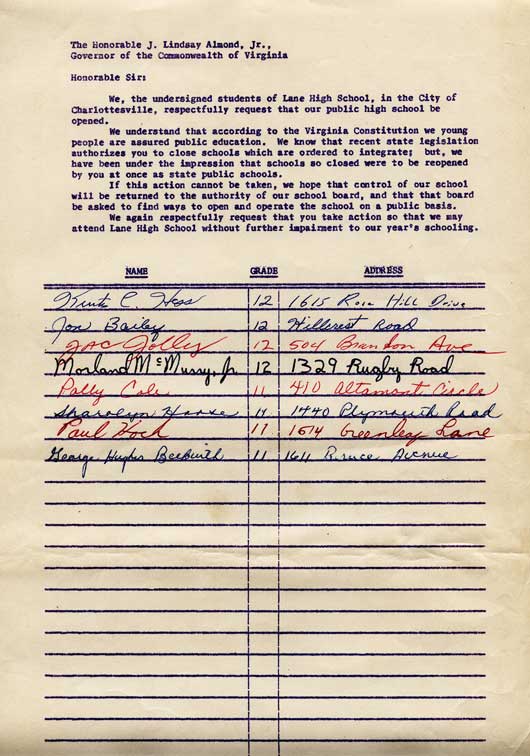 The Honorable J. Lindsay Almond, Jr.,
Governor of the Commonwealth of Virginia
Honorable Sir:
We, the undersigned students of Lane High School, in the City of
Charlottesville, respectfully request that our public high school be
opened.
We understand that according to the Virginia Constitution we young
people are assured public education. We know that recent state legislation
authorizes you to close schools which are ordered to integrate; but, we
have been under the impression that schools so closed were to be reopened
by you at once as state public schools.
If this action cannot be taken, we hope that control of our school
will be returned to the authority of our school board, and that that board
be asked to find ways to open and operate the school on a public basis.
We again respectfully request that you take action so that we may
attend Lane High School without further impairment to our year's schooling.
NAME GRADE ADDRESS
C. Hess 12 1615 Rose Hill Drive
Jon Bailey 12 Hillcrest Road
Jolly 12 504 Brandon Ave
Morland McMurry, Jr. 12 1329 Rugby Road
Polly Cole 11 410 Altamont Circle
11 1440 Plymouth Road
Paul Hoch 11 1614 Greenley Lane
George Hughes Beckwith 11 1611 Bruce Avenue